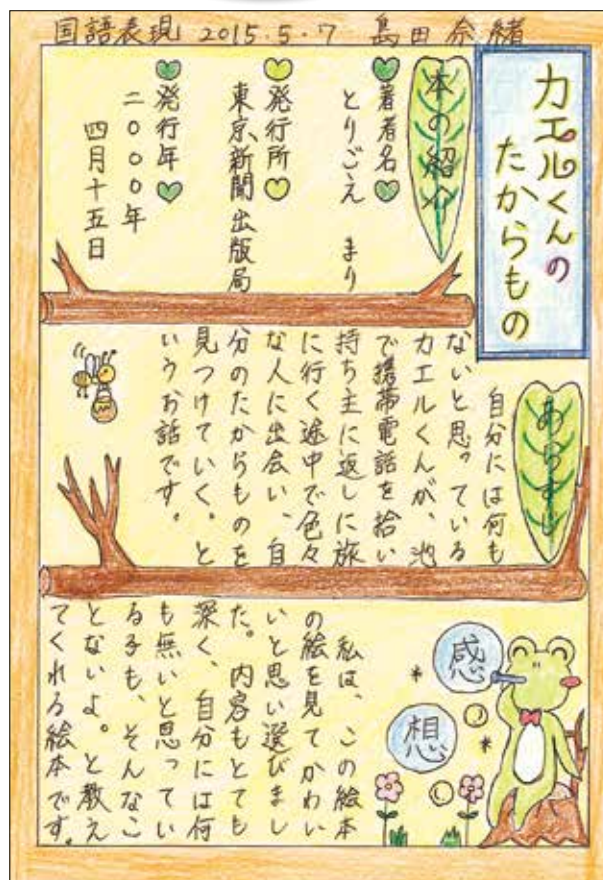 国語表現 2015.5.7 島田奈緒
カエルくんの
たからもの
本の紹介
著者名
とりごえ まり
発行所
東京新聞出版局
発行年
二〇〇〇年
四月十五日
あらすじ
自分には何も
ないと思っている
カエルくんが、池
で携帯電話を拾い
持ち主に返しに旅
に行く途中で色々
な人に出会い、自
分のたからものを
見つけていく。と
いうお話です。
感想
私は、この絵本
の絵を見てかわい
いと思い選びまし
た。内容もとても
深く、自分には何
も無いと思ってい
る子も、そんなこ
とないよ。と教え
てくれる絵本です。